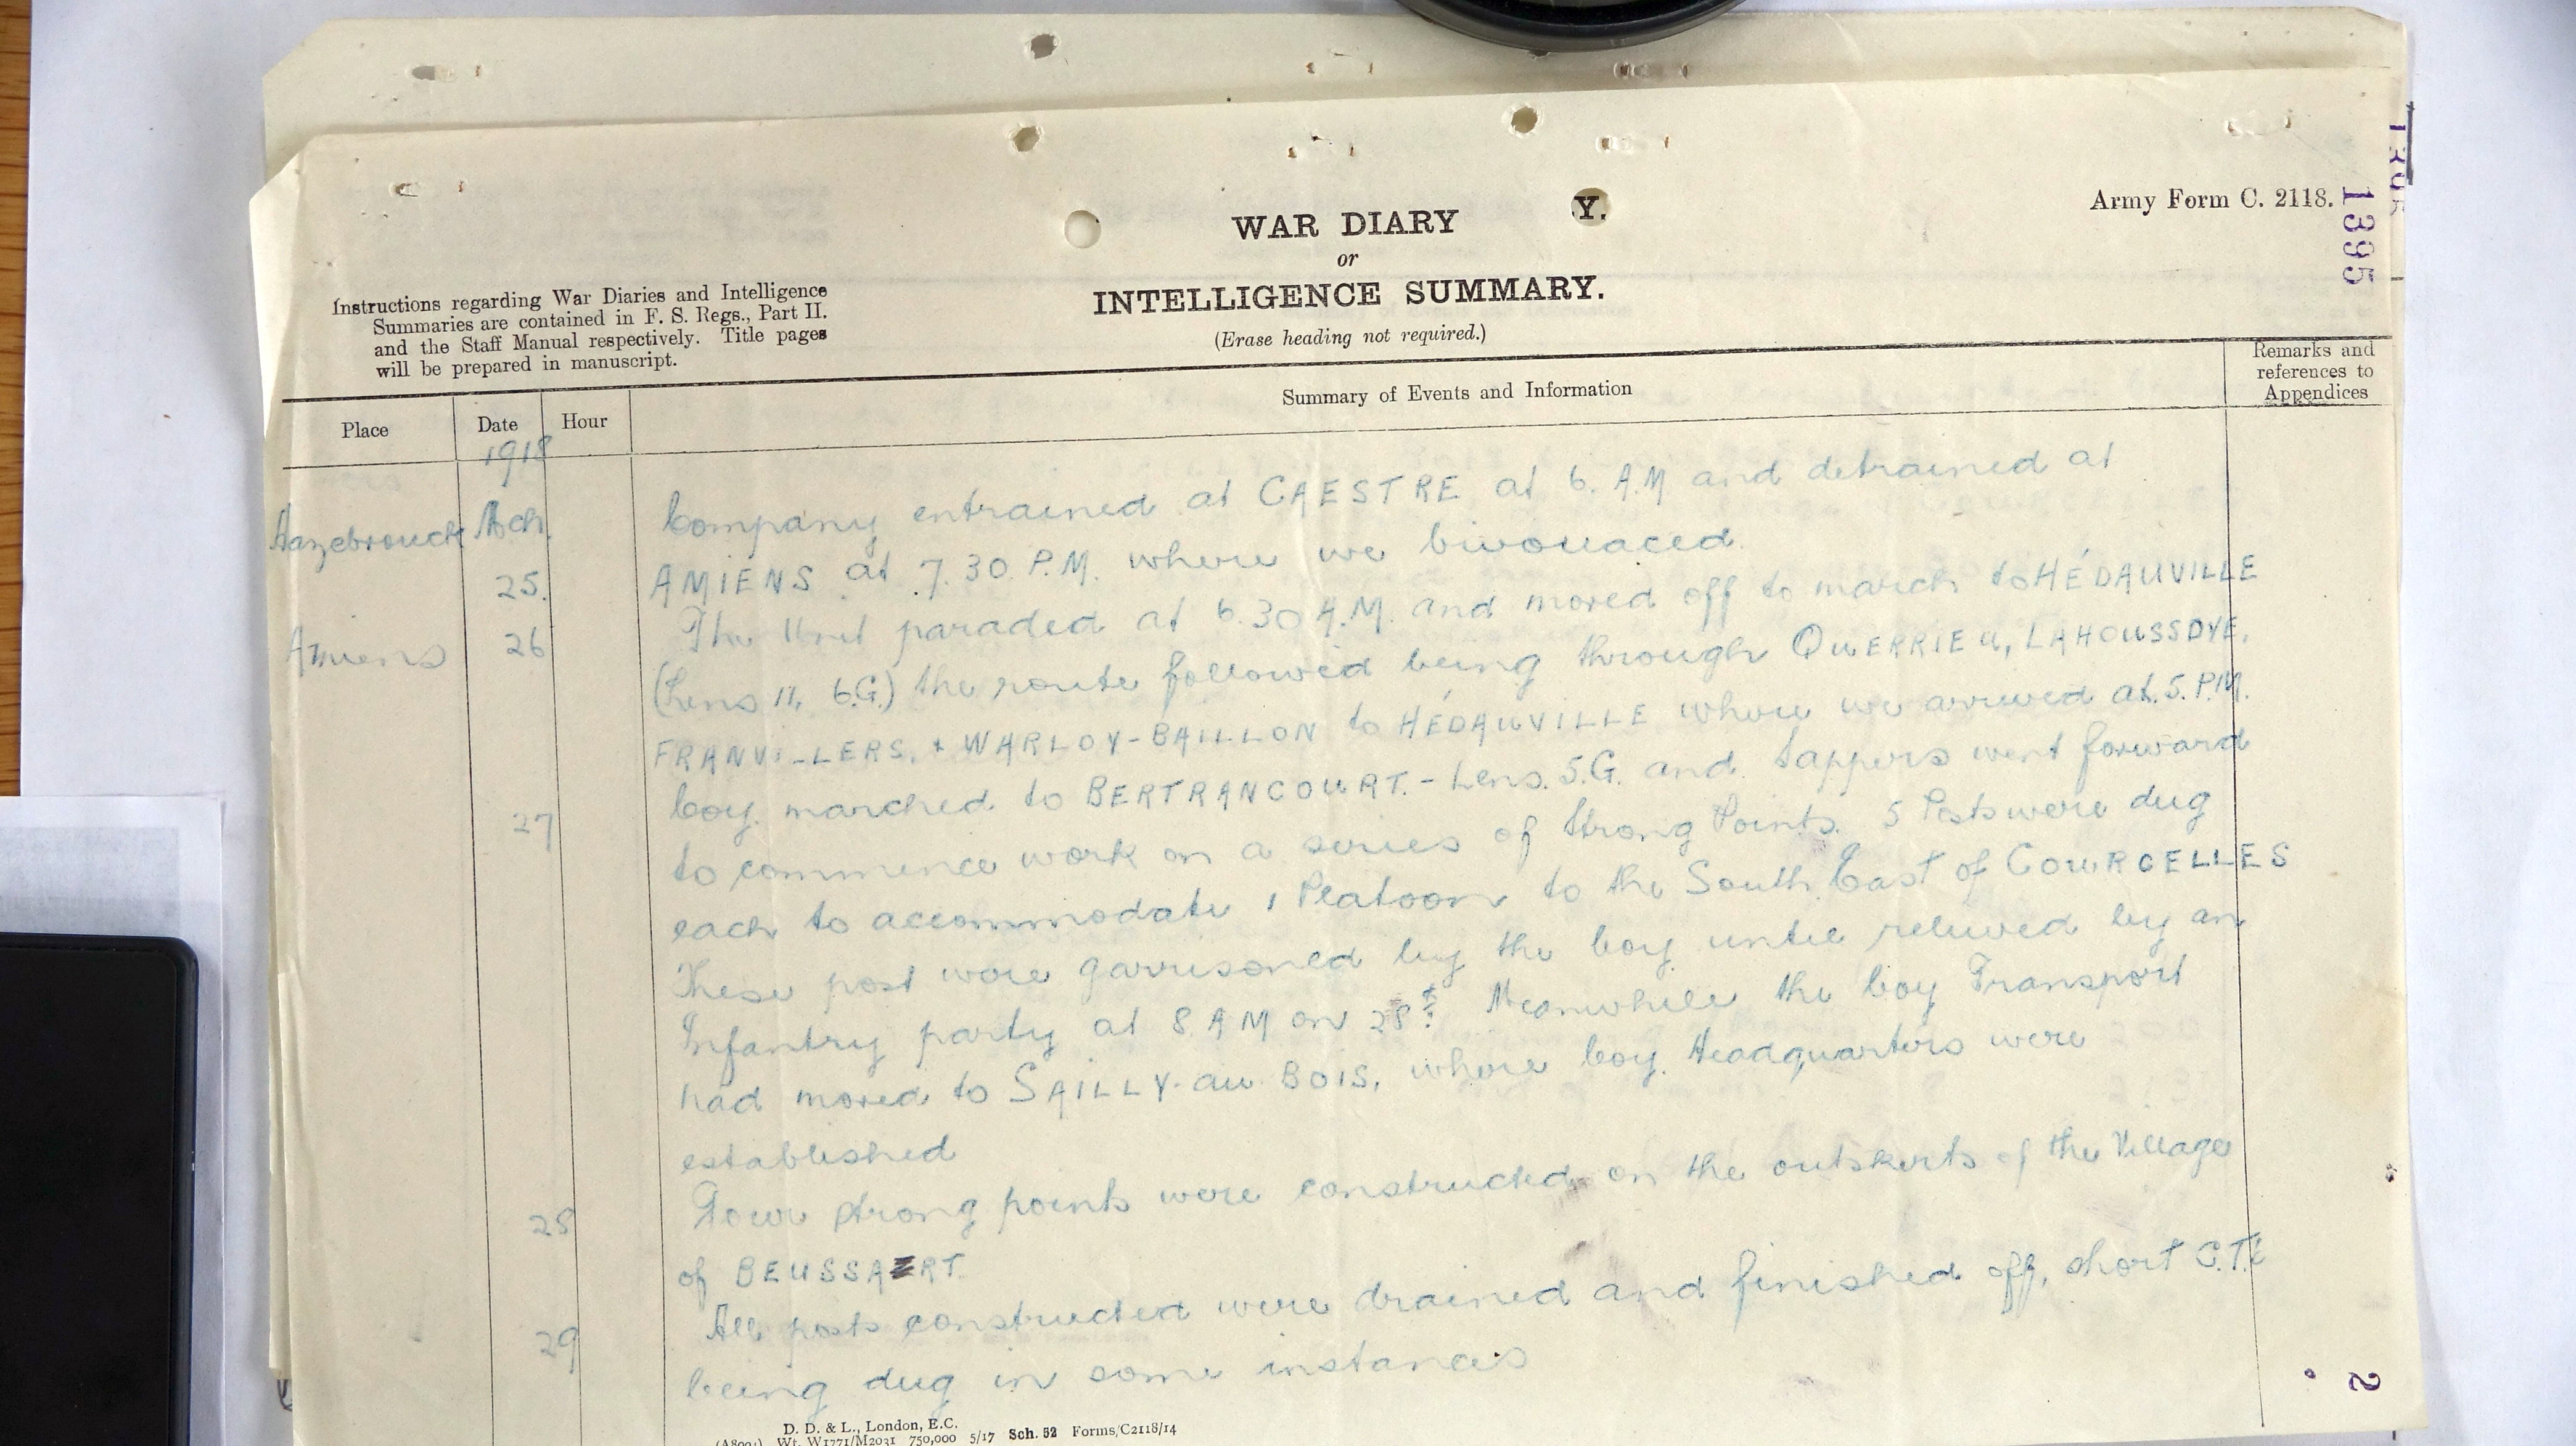 Army Form C. 2118.
1395
WAR DIARY
Y.
or
INTELLIGENCE SUMMARY.
(Erase heading not required.)
Instructions regarding War Diaries and Intelligence
Summaries are contained in F. S. Regs., Part II.
and the Staff Manual respectively. Title pages
will be prepared in manuscript.
Place Date Hour Summary of Events and Information Remarks and
references to
Appendices
1918
Hazebrouck Mch. Company entrained at CAESTRE at 6. A.M and detrained at
25. AMIENS at 7.30. P.M. where we bivouaced.
Amiens 26 The Unit paraded at 6.30 A.M. and moved off to march to HÉDAUVILLE
(Lens 11, 6.G.) the route followed being through QUERRIEU, LAHOUSSOYE,
FRANVILLERS, + WARLOY-BAILLON to HÉDAUVILLE where we arrived at 5. P.M.
27 Coy. marched to BERTRANCOURT. - Lens. 5.G. and Sappers went forward
to commence work on a series of Strong Points. 5 Posts were dug
each to accommodate 1 Platoon to the South East of COURCELLES
These post were garrisoned by the Coy. until relieved by an
Infantry party at 8 A M on 28th. Meanwhile the Coy Transport
had moved to SAILLY-au BOIS, where Coy. Headquarters were
established
28 Four strong points were constructed on the outskirts of the Village
of BEUSSART.
29 All posts constructed were drained and finished off, short C.T.s
being dug in some instances
2
D. D. & L., London, E.C.
Wt. W1771/M2031 750,000 5/17 Sch. 52 Forms/C2118/14